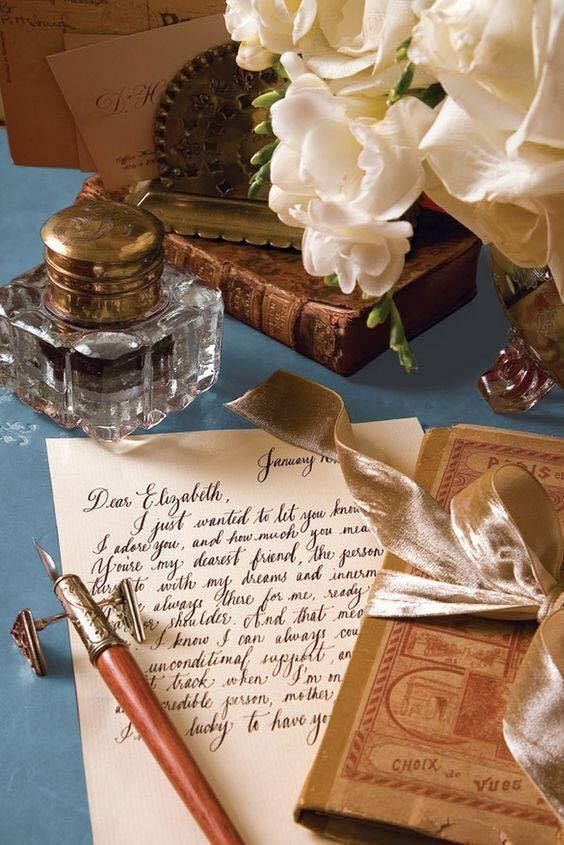 Pittsburgh
January
Dear Elizabeth,
I just wanted to let you know
I adore you, and how much you mea
You're my dearest friend, the person
to with my dreams and innerm
always there for me, ready
or shoulder. And that mea
I know I can always cou
unconditional support, an
track when I'm on
credible person, mother
lucky to have yo
PARIS
CHOIX de VUES